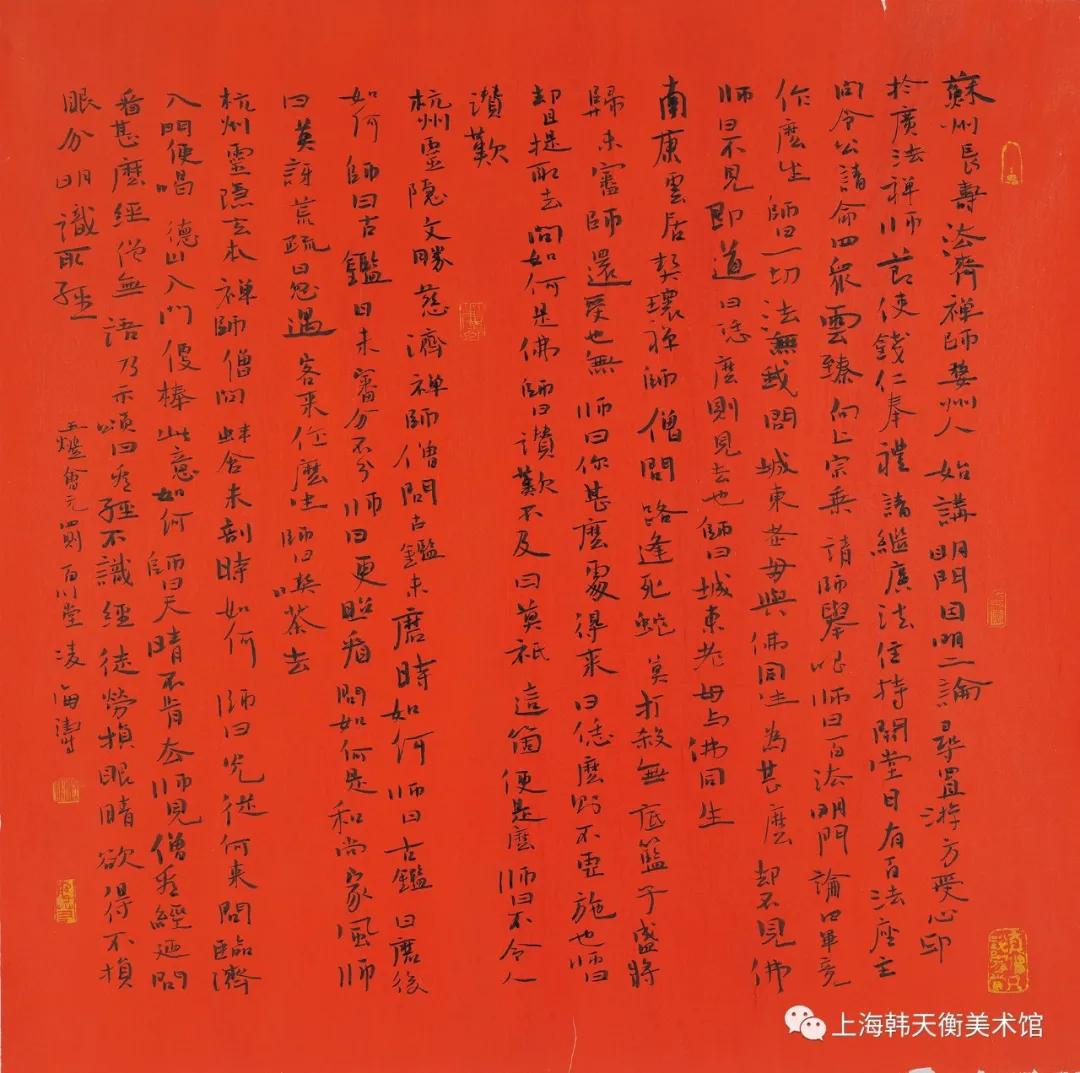 蘇州長壽法齊禅師婺州人始講明門因明二論尋置游方受心印
於廣法禅师節使錢仁奉禮請繼廣法住持開堂日有百法座主
问令公請命四眾雲臻向上宗乘請師舉唱师曰百法明門論曰畢竟
作麼生師曰一切法無我問城東老毋與佛同生為甚麼却不見佛
师曰不見即道曰恁麼則見去也師曰城東老母与佛同生
南康雲居契瓌禅師僧問路逢死蛇莫打殺無底籃子盛將
歸未審師還受也無师曰你甚麼處得来曰恁麼則不虛施也师曰
却且提取去問如何是佛師曰讚歎不及曰莫祇這箇便是麼师曰不令人
讚歎
杭州靈隐文勝慈濟禅師僧問古鑑未磨時如何师曰古鑑曰磨後
如何師曰古鑑曰未審分不分师曰更照看問如何是和尚家風师
曰莫訝荒疏曰忽遇客来作麼生師曰喫茶去
杭州靈隐玄本禅師僧问蚌含未剖時如何師曰光從何来問臨濟
入門便喝德山入门便棒此意如何師曰天晴不肯去师見僧看經迺問
看甚麼經僧無語乃示頌曰看經不識經徒勞損眼睛欲得不損
眼分明識取經
五燈會元四则百川堂凌海濤
上海韩天衡美术馆